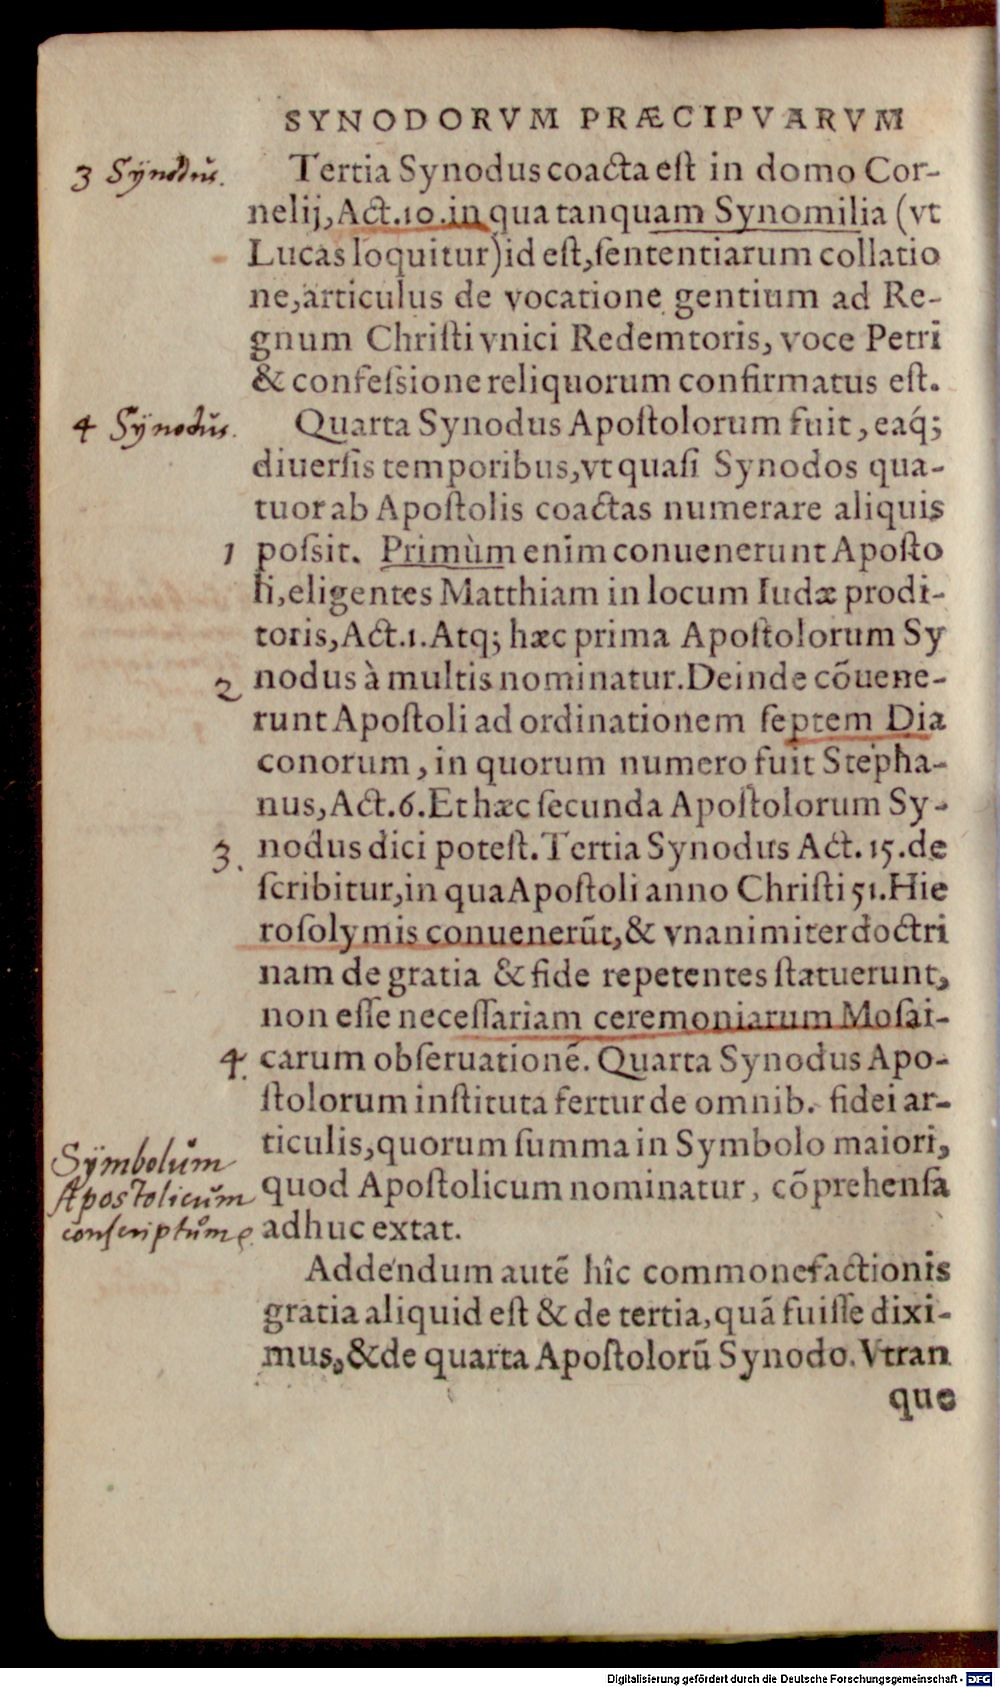 SYNODORVM PRÆCIPVARVM
3 Synodus.
Tertia Synodus coacta eſt in domo Cor-
nelij, Act. 10. in qua tanquam Synomilia (vt
Lucas loquitur) id eſt, ſententiarum collatio
ne, articulus de vocatione gentium ad Re-
gnum Chriſti vnici Redemtoris, voce Petri
& confeſsione reliquorum confirmatus eſt.
4 Synodus.
Quarta Synodus Apoſtolorum fuit, eaq́;
diuerſis temporibus, vt quaſi Synodos qua-
tuor ab Apoſtolis coactas numerare aliquis
1 poſsit. Primùm enim conuenerunt Apoſto
li, eligentes Matthiam in locum Iudæ prodi-
toris, Act. 1. Atq; hæc prima Apoſtolorum Sy
2 nodus à multis nominatur. Deinde cõuene-
runt Apoſtoli ad ordinationem ſeptem Dia
conorum, in quorum numero fuit Stepha-
nus, Act. 6. Et hæc ſecunda Apoſtolorum Sy-
3. nodus dici poteſt. Tertia Synodus Act. 15. de
ſcribitur, in qua Apoſtoli anno Chriſti 51. Hie
roſolymis conuenerũt, & vnanimiter doctri
nam de gratia & fide repetentes ſtatuerunt,
non eſſe neceſſariam ceremoniarum Moſai-
4. carum obſeruationẽ. Quarta Synodus Apo-
ſtolorum inſtituta fertur de omnib. fidei ar-
ticulis, quorum ſumma in Symbolo maiori,
quod Apoſtolicum nominatur, cõprehenſa
adhuc extat.
Symbolum
Apostolicum
conſcriptum
Addendum autẽ hîc commonefactionis
gratia aliquid eſt & de tertia, quã fuiſſe dixi-
mus, & de quarta Apoſtolorũ Synodo. Vtran
que
Digitalisierung gefördert durch die Deutsche Forschungsgemeinschaft - DFG